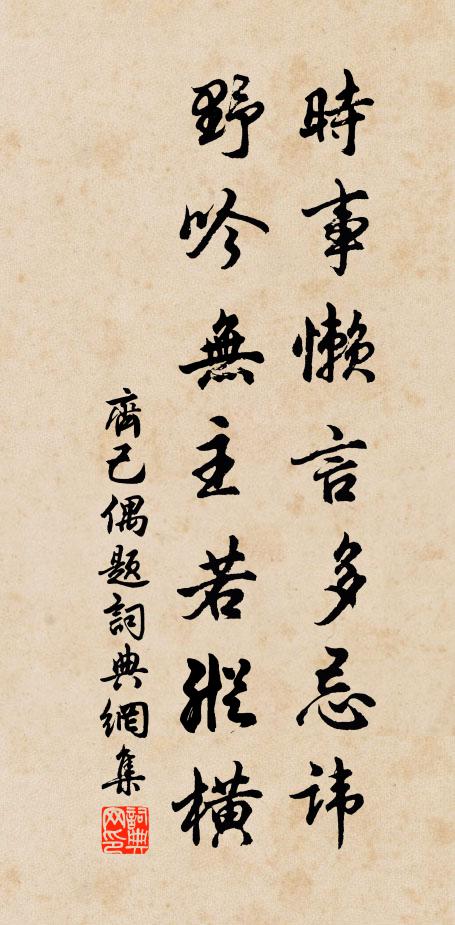 時事懶言多忌諱
野吟無主若縱橫
齊己偶題詞典網集
詞典網印